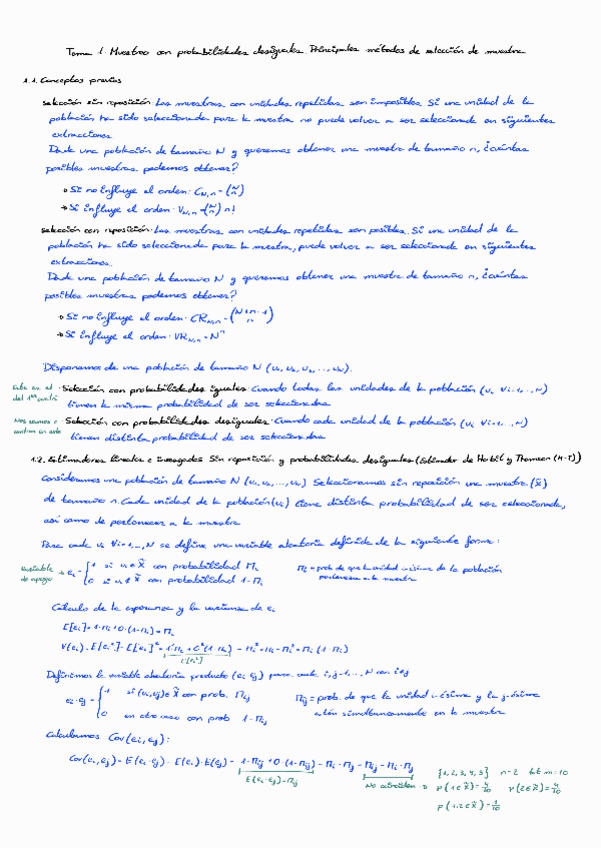 Tema 1. Muestreo con probabilidades desiguales. Principales métodos de selección de muestra
1.1. Conceptos previos
selección sin reposición: Las muestras con unidades repetidas son imposibles. Si una unidad de la
población ha sido seleccionada para la muestra no puede volver a ser seleccionada en siguientes
extracciones.
Dada una población de tamaño N y queremos obtener una muestra de tamaño n, ¿cuántas
posibles muestras podemos obtener?
→ Si no influye el orden: C_{N,n} = (N n)
→ Si influye el orden: V_{N,n} = (N n) n!
selección con reposición: Las muestras con unidades repetidas son posibles. Si una unidad de la
población ha sido seleccionada para la muestra, puede volver a ser seleccionada en siguientes
extracciones.
Dada una población de tamaño N y queremos obtener una muestra de tamaño n, ¿cuántas
posibles muestras podemos obtener?
→ Si no influye el orden: CR_{N,n} = (N+n-1 n)
→ Si influye el orden: VR_{N,n} = N^n
Disponemos de una población de tamaño N (u₁, u₂, u₃, ..., u_N).
Esta en el · Selección con probabilidades iguales: Cuando todas las unidades de la población (u_i ∀i=1,..,N)
del 1er cuatri tienen la misma probabilidad de ser seleccionadas
Nos vamos a · Selección con probabilidades desiguales: Cuando cada unidad de la población (u_i ∀i=1,..,N)
centrar en este tienen distinta probabilidad de ser seleccionada
1.2. Estimadores lineales e insesgados. Sin reposición y probabilidades desiguales (Estimador de Horvitz y Thomson (H-T))
Consideramos una población de tamaño N (u₁, u₂, ..., u_N). Seleccionaremos sin reposición una muestra (x̃)
de tamaño n. Cada unidad de la población (u_i) tiene distinta probabilidad de ser seleccionada,
así como de pertenecer a la muestra
Para cada u_i ∀i=1,..,N se define una variable aleatoria definida de la siguiente forma:
variable de apoyo → e_i = { 1 si u_i ∈ x̃ con probabilidad π_i
0 si u_i ∉ x̃ con probabilidad 1-π_i
π_i = prob de que la unidad i-ésima de la población
pertenezca a la muestra
Cálculo de la esperanza y la varianza de e_i
E[e_i] = 1·π_i + 0·(1-π_i) = π_i
V(e_i) = E[e_i²] - E[e_i]² = 1²·π_i + 0²(1-π_i) - π_i² = π_i - π_i² = π_i (1-π_i)
E[e_i²]
Definimos la variable aleatoria producto (e_i e_j) para cada i,j=1,..,N con i≠j
e_i·e_j = { 1 si (u_i,u_j) ∈ x̃ con prob. π_ij
0 en otro caso con prob 1-π_ij
π_ij = prob. de que la unidad i-ésima y la j-ésima
estén simultáneamente en la muestra
Calculamos Cov(e_i, e_j):
Cov(e_i, e_j) = E(e_i·e_j) - E(e_i)·E(e_j) = 1·π_ij + 0·(1-π_ij) - π_i·π_j = π_ij - π_i·π_j
E(e_i·e_j) = π_ij
No coinciden →
{1,2,3,4,5} n=2 tot m=10
p(1∈x̃) = 4/10 p(2∈x̃) = 4/10
p(1,2∈x̃) = 1/10